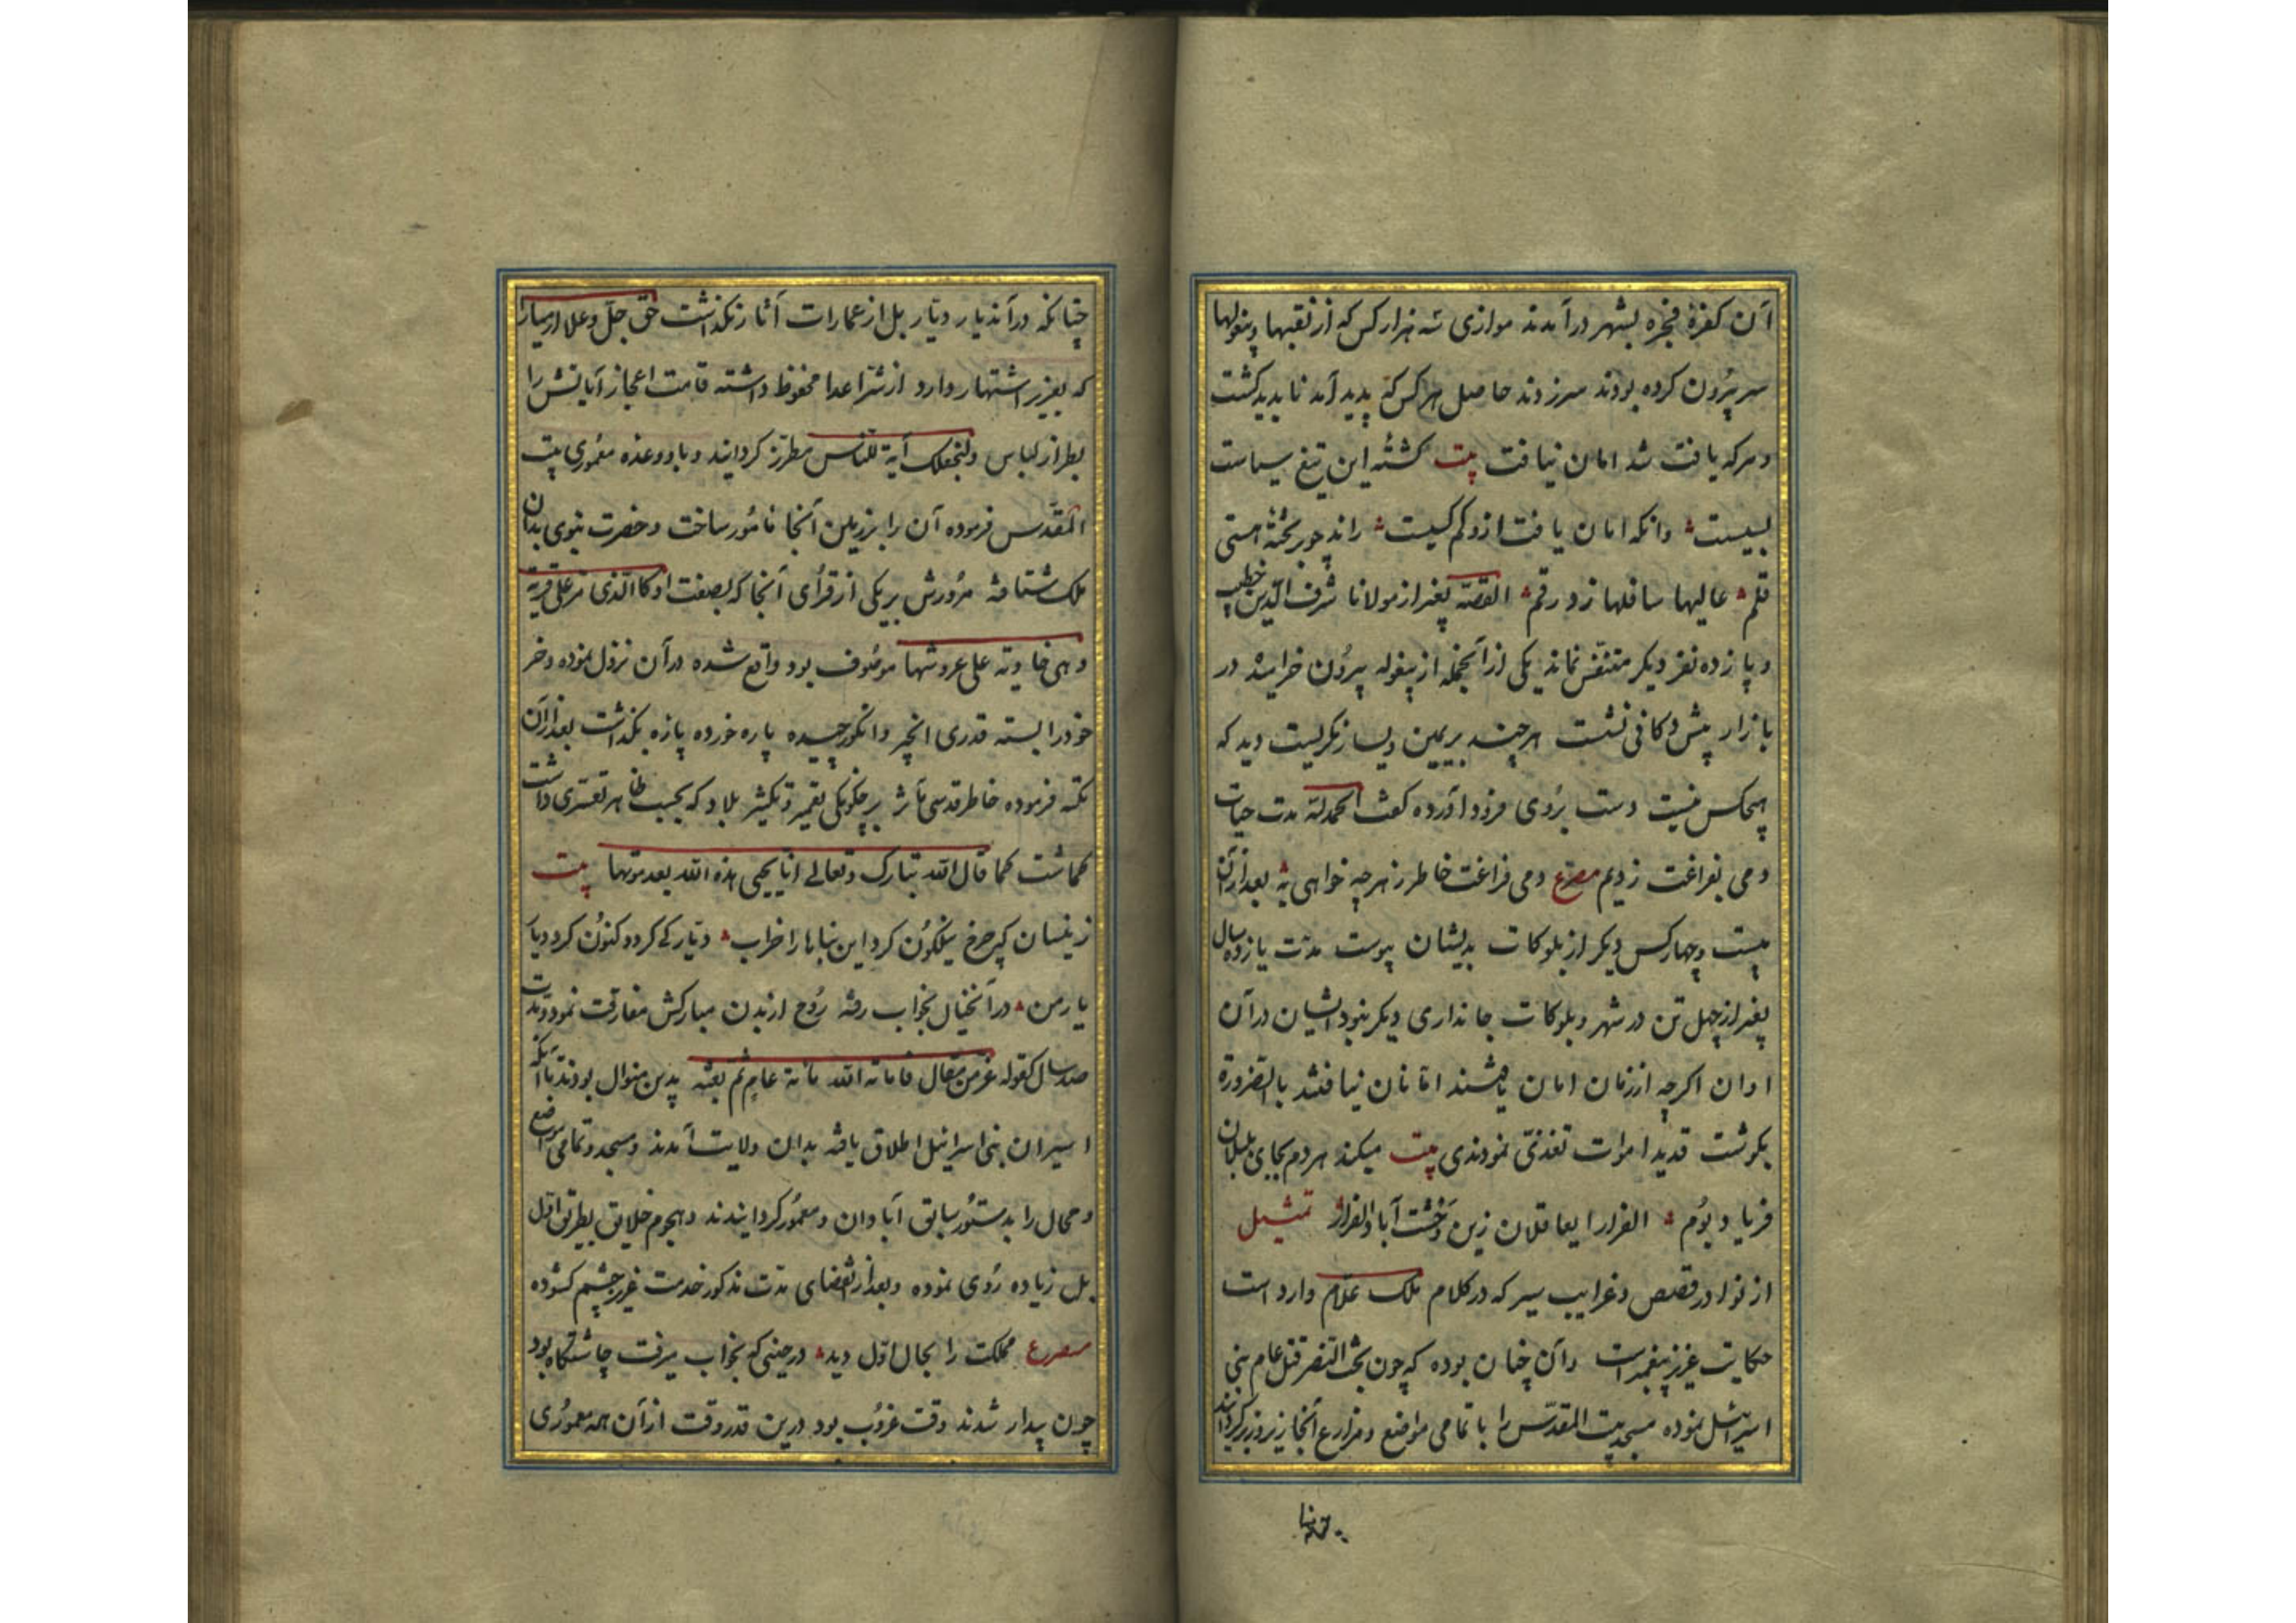 آن کفرهٔ فجره بشهر درآمدند موازی سه هزار کس که از نقبها و بیغولها
سر بیرون کرده بودند سر زدند حاصل هر کس که پدید آمد ناپدید کشت
و هر که یافت شد امان نیافت بیت کشتهٔ این تیغ سیاست
بسیست وانکه امان یافت ازو کم کسیست راند چو بر تختهٔ هستی
قلم عالیها سافلها زد رقم القصّه بغیر از مولانا شرف الدّین خطیب
و پانزده نفر دیکر متنفّس نماند یکی از آنجمله از بیغوله بیرون خرامید در
بازار پیش دکانی نشست هر چند بر یمین و یسار نکریست دید که
هیچکس نیست دست بروی فرود آورده کفت الحمدلله مدت حیات
دمی بفراغت زدیم مصرع دمی فراغت خاطر ز هر چه خواهی به بعد از آن
بیست و چهار کس دیکر از بلوکات بدیشان پیوست مدّت یازده سال
بغیر از چهل تن در شهر و بلوکات جانداری دیکر نبود ایشان در آن
اوان اکرچه از زمان امان یافتند امّا نان نیافتند بالضّرورة
بکوشت قدید اموات تغذّی نمودندی بیت میکند هر دم بجای بلبلان
فریاد بوم الفرار ایعاقلان زین وحشت آباد الفرار تمثیل
از نوادر قصص و غرایب سیر که در کلام ملک علّام وارد است
حکایت عزیز پیغمبر است و آن چنان بوده که چون بخت النّصر قتل عام بنی
اسرائیل نموده مسجد بیت المقدّس را با تمامی مواضع و مزارع آنجا زیر و زبر کردانید
چنانکه در آندیار دیّار بل از عمارات آثار نکذاشت حق جلّ و علا ارمیا را
که بعزیر اشتهار دارد از شرّ اعدا محفوظ داشته قامت اعجاز آیاتش را
بطراز لباس ولنجعلک آیة للنّاس مطرّز کردانید و باو وعده معموری بیت
المقدّس فرموده آن را بزیدن آنجا مأمور ساخت و حضرت نبوی بدان
ملک شتافته مرورش بر یکی از قرای آنجا که بصفت او کالّذی مرّ علی قریة
و هی خاویة علی عروشها موصوف بود واقع شده در آن نزول نموده و خر
خود را بسته قدری انجیر و انکور چیده پاره خورده پاره بکذاشت بعد از آن
تکیه فرموده خاطر قدسی مآثر بر چکونکی تعمیر و تکثیر بلاد که بحسب ظاهر تعسّری داشت
کماشت کما قال الله تبارک و تعالی انّا یحیی هذه الله بعد موتها بیت
زینسان که چرخ نیلکون کرد این بناها را خراب دیّار کی کردد کنون کرد دیار
یار من در آنخیال بخواب رفته روح از بدن مبارکش مفارقت نمود و مدت
صد سال کقوله عزّ من قال فاماته الله مائة عام ثم بعثه بدین منوال بودند تا آنکه
اسیران بنی اسرائیل اطلاق یافته بدان ولایت آمدند و مسجد و تمامی مواضع
و محال را بدستور سابق آبادان و معمور کردانیدند و هجوم خلایق بطریق اوّل
بل زیاده روی نموده و بعد از انقضای مدّت مذکور خدمت عزیر چشم کشوده
مصرع مملکت را بحال اوّل دید در حینی که بخواب میرفت چاشتکاه بود
چون بیدار شدند وقت غروب بود درین قدر وقت از آن همه معموری
چنانکه